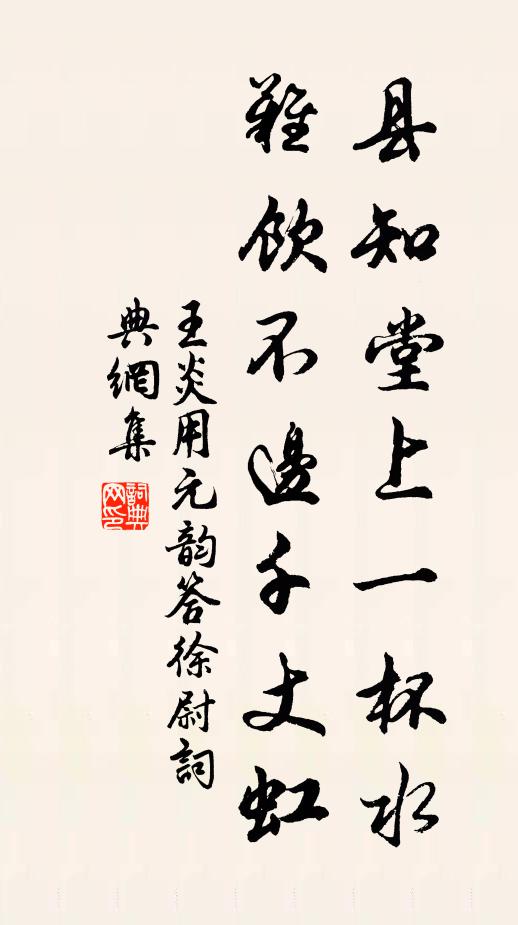 县知堂上一杯水
难饮不邊千丈虹
王炎用元韵答徐尉詞
典網集
詞典网印